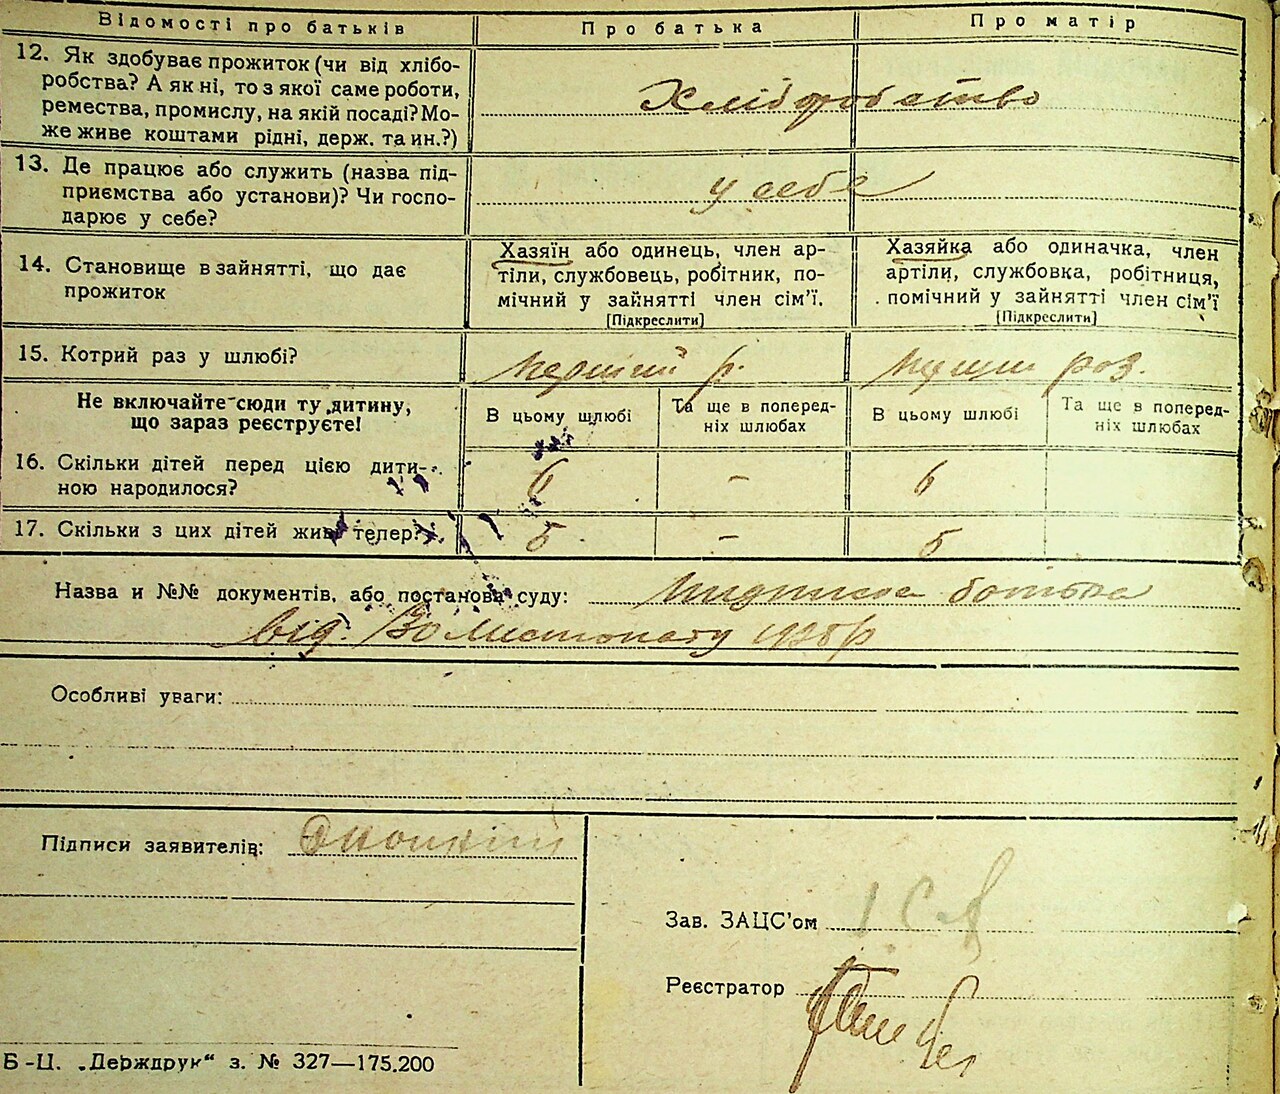 Відомості про батьків Про батька Про матір
12. Як здобуває прожиток (чи від хлібо-
робства? А як ні, то з якої саме роботи,
ремества, промислу, на якій посаді? Мо-
же живе коштами рідні, держ. та ин.?)
Хліборобство
13. Де працює або служить (назва під-
приємства або установи)? Чи госпо-
дарює у себе?
у себе
14. Становище в зайнятті, що дає
прожиток
Хазяїн або одинець, член ар-
тіли, службовець, робітник, по-
мічний у зайнятті член сім'ї.
[Підкреслити]
Хазяйка або одиначка, член
артіли, службовка, робітниця,
помічний у зайнятті член сім'ї
[Підкреслити]
15. Котрий раз у шлюбі? перший р. роз.
Не включайте сюди ту дитину,
що зараз реєструєте!
В цьому шлюбі
Та ще в поперед-
ніх шлюбах
В цьому шлюбі
Та ще в поперед-
ніх шлюбах
16. Скільки дітей перед цією дити-
ною народилося?
6 - 6
17. Скільки з цих дітей живі тепер? 5 - 5
Назва и №№ документів, або постанова суду: батька
від. Листопаду
Особливі уваги:
Підписи заявителів:
Зав. ЗАЦС'ом
Реєстратор
Б-Ц. „Держдрук“ з. № 327—175.200